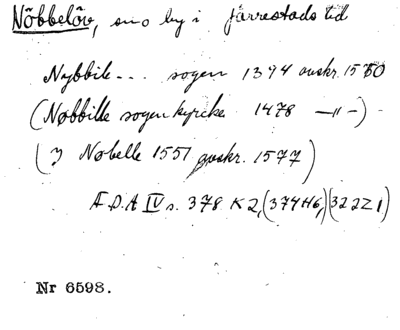 Nöbbelöv, sno by i Järrestads tid
Nybbile... sogen 1394 avskr. 1550
(Nøbbille sogen kyrcke 1478 —"—)
(J Nøbelle 1551 avskr. 1577)
Æ D.A IV s. 378 K2, (374 H6,) (322 Z1)
Nr 6598.